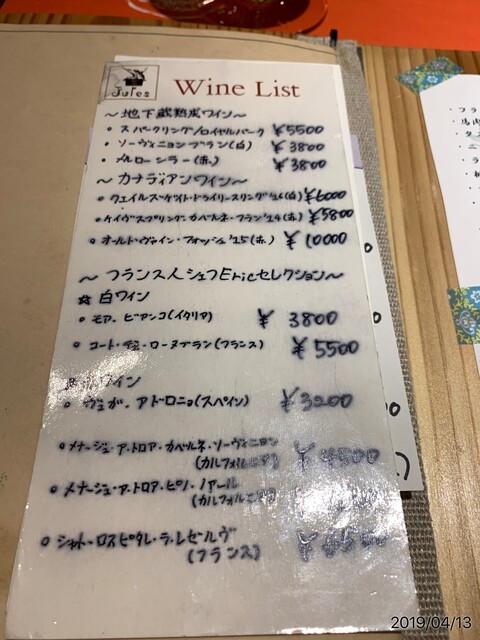 Jules
Wine List
～地下蔵熟成ワイン～
・スパークリング/ロイヤルパーク ¥5500
・ソーヴィニヨンブラン(白) ¥3800
・メルローシラー(赤) ¥3800
～カナディアンワイン～
・ウェイルズゲイト・ドライリースリング'16(白) ¥6000
・ケイヴスプリング カベルネ・フラン'14(赤) ¥5800
・オールド・ヴァイン・フォッシュ'15(赤) ¥10000
～フランス人シェフEricセレクション～
☆白ワイン
・モア・ビアンコ(イタリア) ¥3800
・コート・デュ・ローヌブラン(フランス) ¥5500
ワイン
・ヴェガ・アドロニョ(スペイン) ¥3200
・メナージュ・ア・トロア・カベルネ・ソーヴィニヨン
(カルフォルニア) ¥4500
・メナージュ・ア・トロア・ピノ・ノアール
(カルフォルニア)
・シャトーロスピタレ・ラ・レゼルヴ
(フランス)
2019/04/13